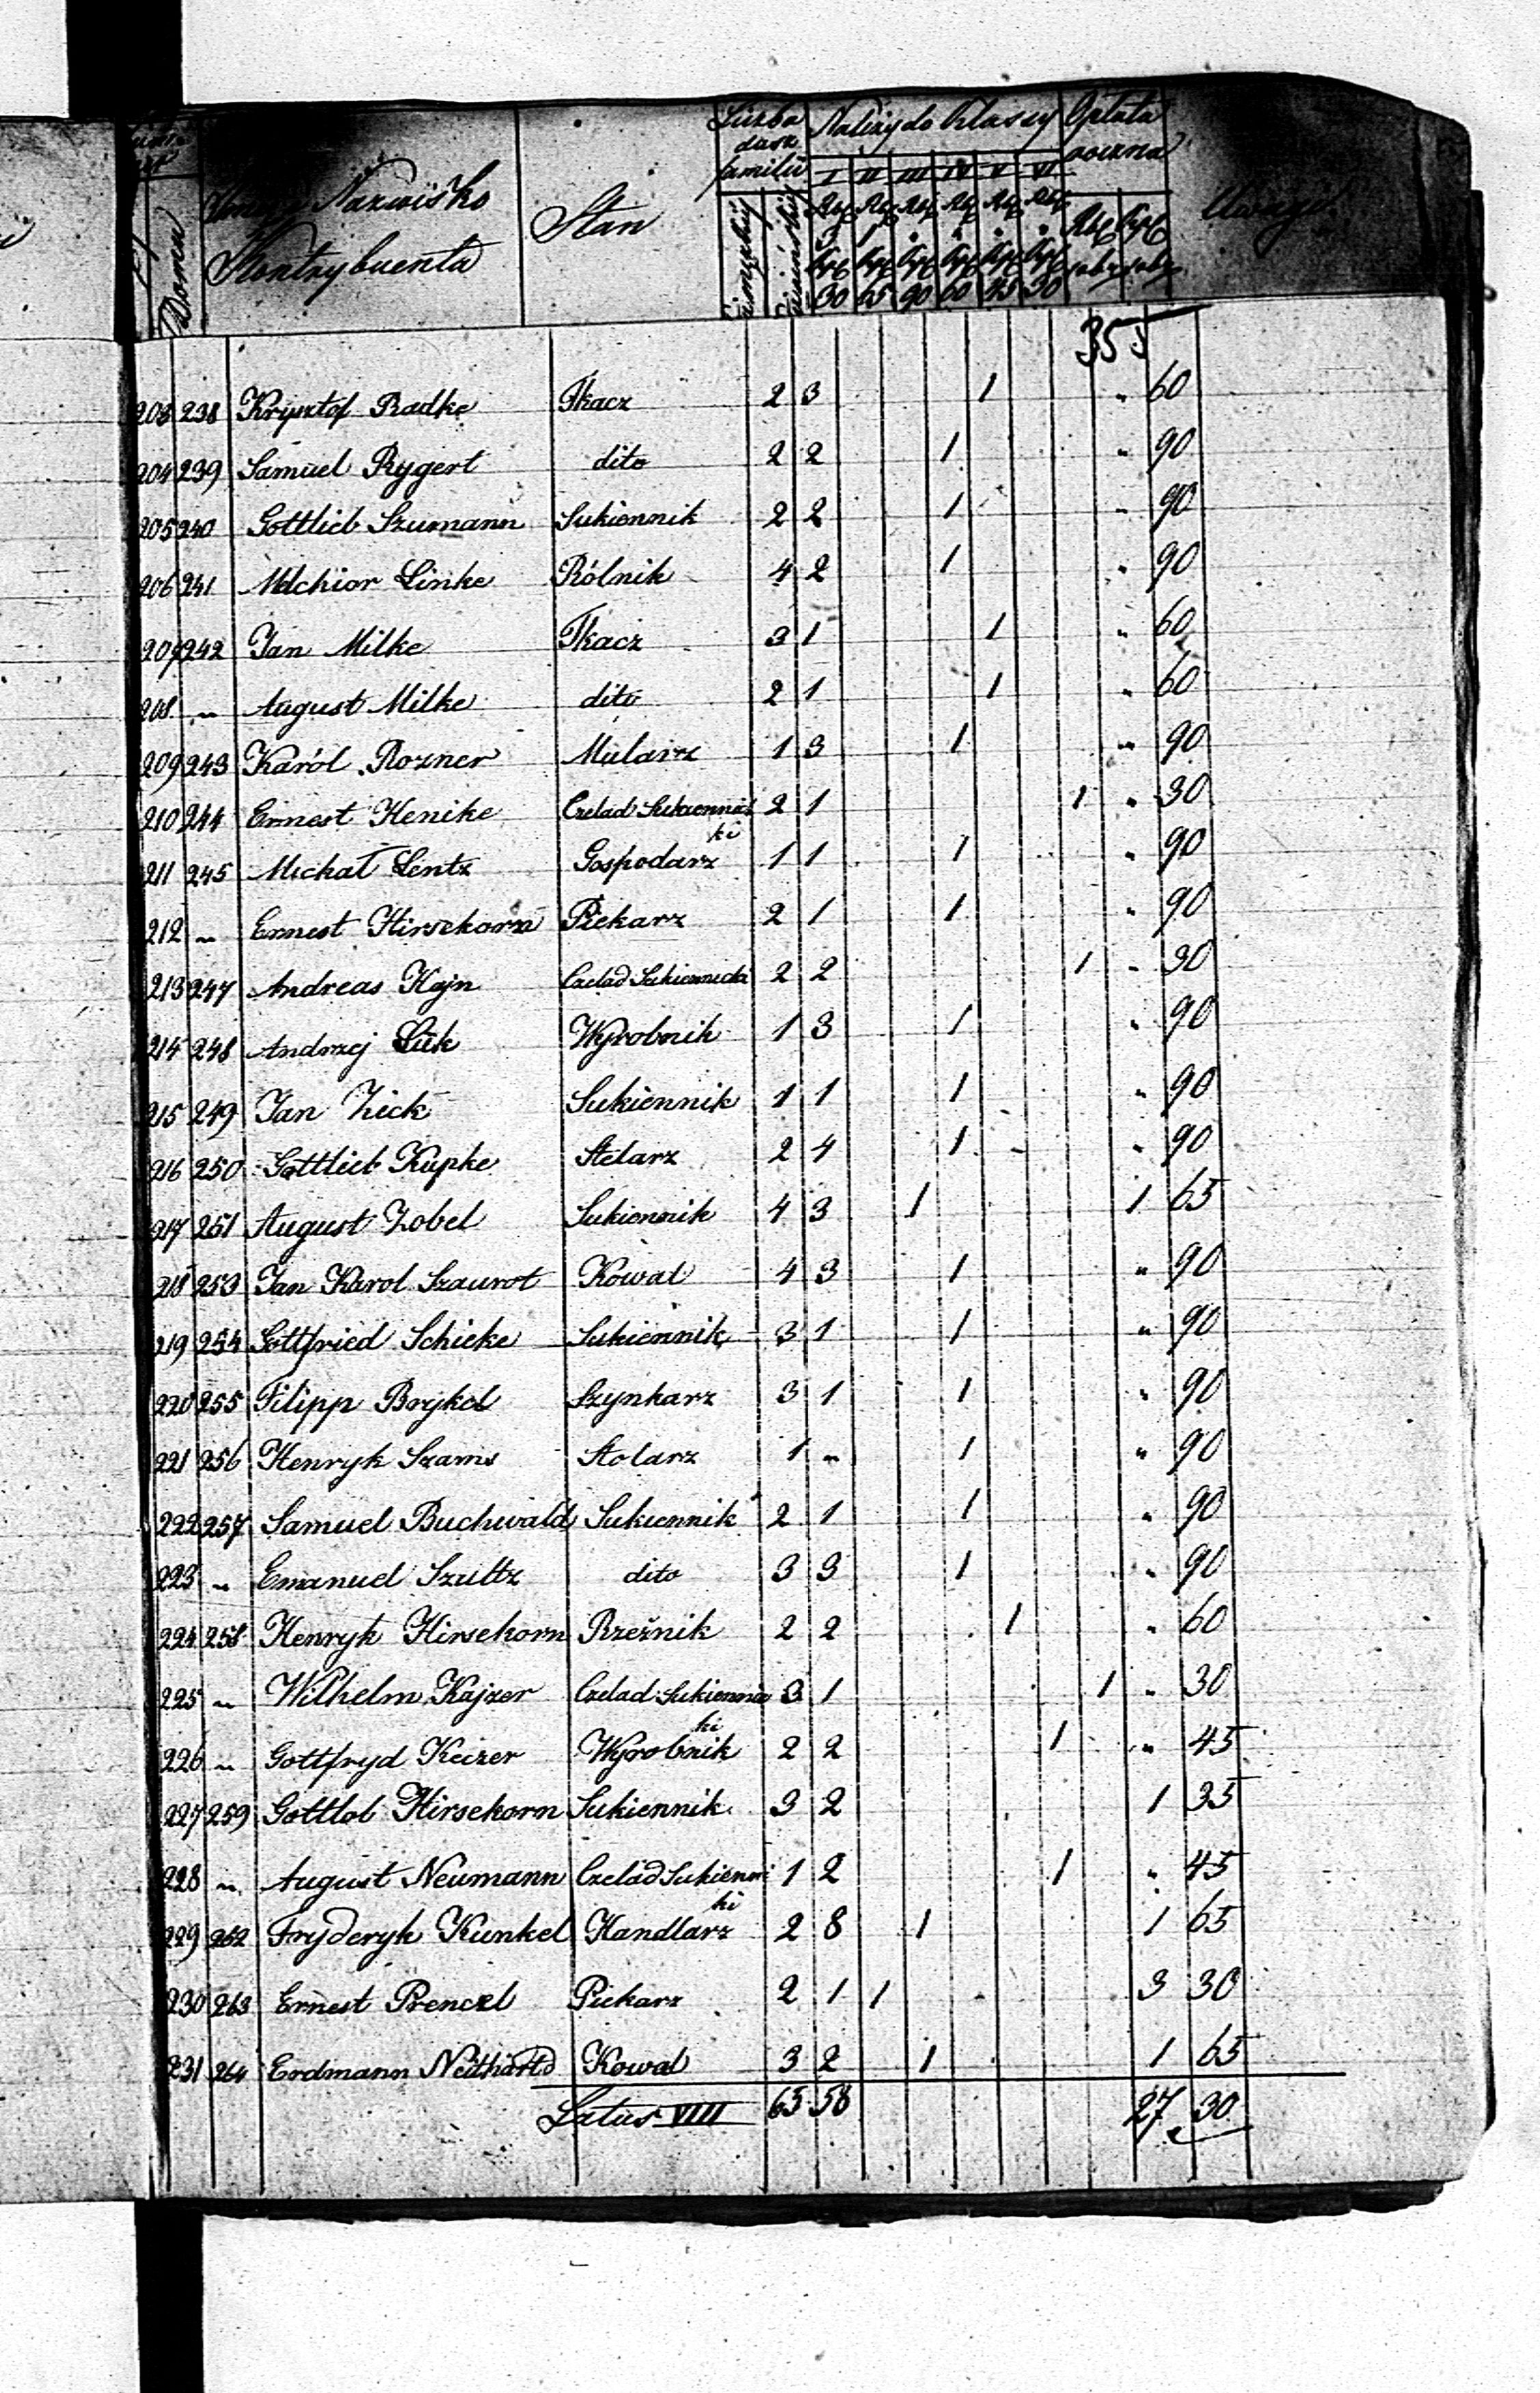 Liczba Należy do Klassy Opłata
dusz roczna
familii I II III IV V VI
Nazwisko Stan Rub Rub Rub Rub Rub Rub Rub Kop Uwagi
Kontrybuenta 3 1 " " " "
Domu kop kop kop kop kop kop
30 65 90 60 45 30
355
203 238 Krysztof Radke Tkacz 2 3 1 " 60
204 239 Samuel Rygert dito 2 2 1 " 90
205 240 Gottlieb Szumann Sukiennik 2 2 1 " 90
206 241 Melchior Linke Rólnik 4 2 1 " 90
207 242 Jan Milke Tkacz 3 1 1 " 60
208 " August Milke dito 2 1 1 " 60
209 243 Karól Rozner Mularz 1 3 1 " 90
210 244 Ernest Henike Czelad Sukiennic 2 1 1 " 30
ki
211 245 Michał Lentz Gospodarz 1 1 1 " 90
212 " Ernest Hirsekorn Piekarz 2 1 1 " 90
213 247 Andreas Hajn Czelad Sukiennicki 2 2 1 " 30
214 248 Andrzej Luk Wyrobnik 1 3 1 " 90
215 249 Jan Zick Sukiennik 1 1 1 " 90
216 250 Gottlieb Kupke Stelarz 2 4 1 " 90
217 251 August Zobel Sukiennik 4 3 1 1 65
218 253 Jan Karol Szaurot Kowal 4 3 1 " 90
219 254 Gottfried Schicke Sukiennik 3 1 1 " 90
220 255 Filipp Brykel Szynkarz 3 1 1 " 90
221 256 Henryk Szams Stolarz 1 " 1 " 90
222 257 Samuel Buchwald Sukiennik 2 1 1 " 90
223 " Emanuel Szultz dito 3 3 1 " 90
224 258 Henryk Hirsekorn Rzeźnik 2 2 1 " 60
225 " Wilhelm Kajzer Czelad Sukiennic 3 1 1 " 30
ki
226 " Gottfryd Keizer Wyrobnik 2 2 1 " 45
227 259 Gottlob Hirsekorn Sukiennik 3 2 1 35
228 " August Neumann Czelad Sukienni 1 2 1 " 45
ki
229 262 Fryderyk Kunkel Handlarz 2 8 1 1 65
230 263 Ernest Prenczl Piekarz 2 1 1 3 30
231 264 Erdmann Neithardt Kowal 3 2 1 1 65
Latus VIII 65 58 27 30